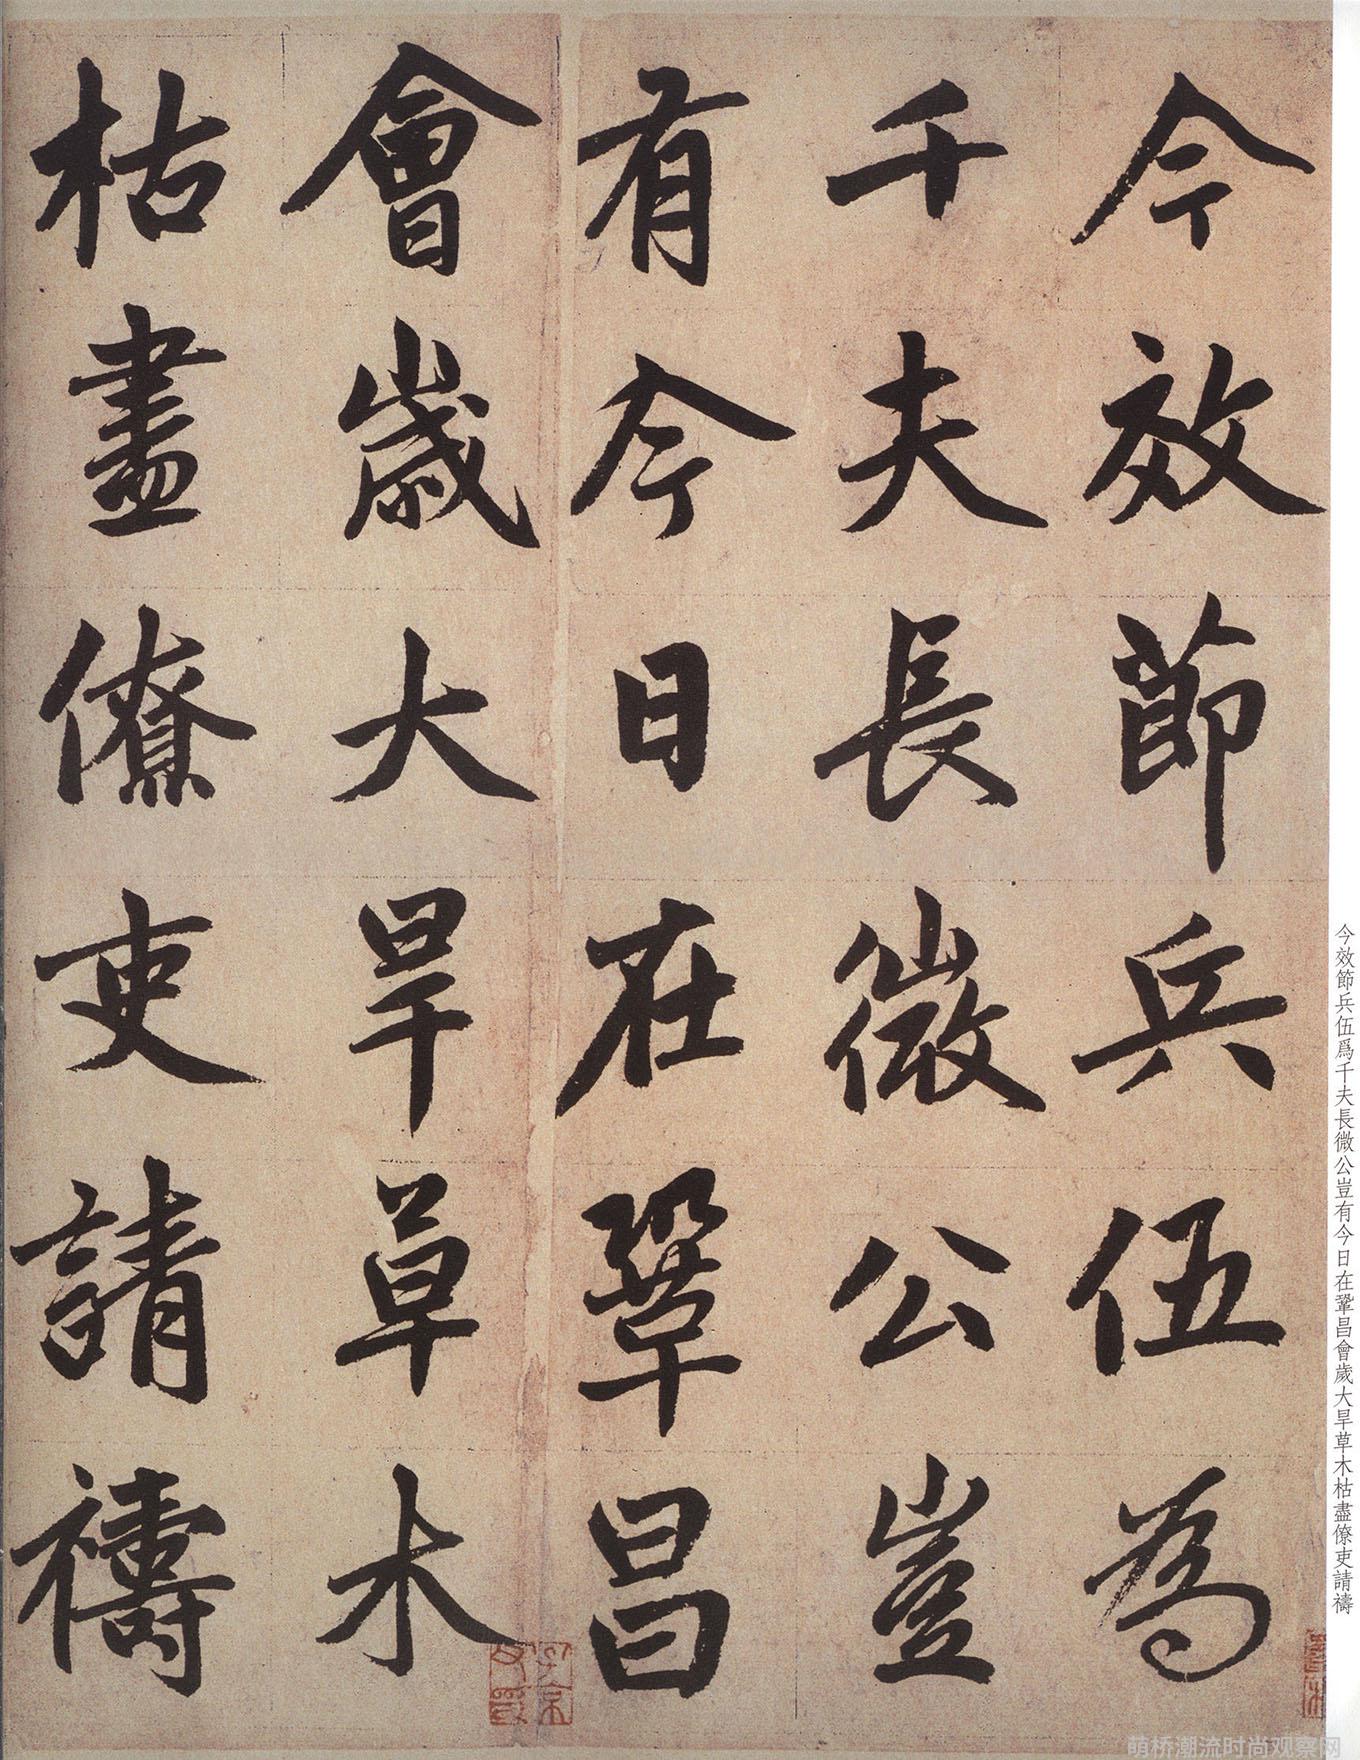 今效節兵伍為
千夫長微公豈
有今日在鞏昌
會歲大旱草木
枯盡僚吏請禱
今效節兵伍爲千夫長微公豈有今日在鞏昌會歲大旱草木枯盡僚吏請禱
萌桥潮流时尚观察网